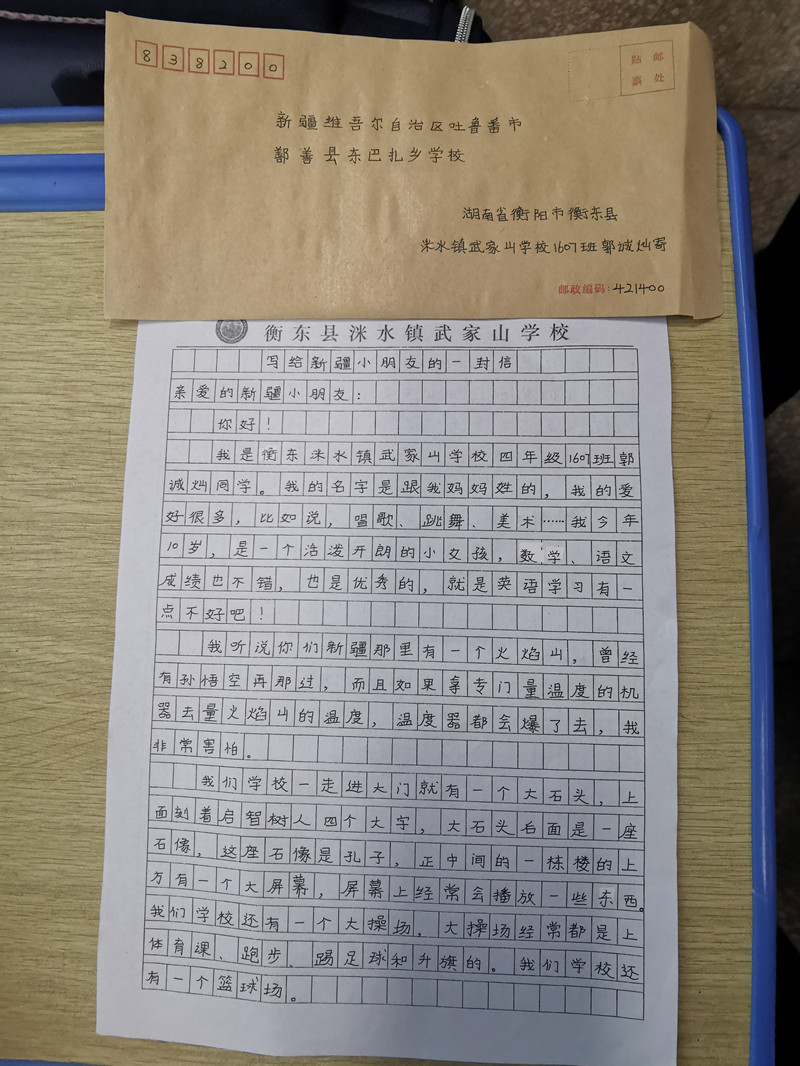 838200
贴 邮
票 处
新疆维吾尔自治区吐鲁番市
鄯善县东巴扎乡学校
湖南省衡阳市衡东县
洣水镇武家山学校1607班郭诚灿寄
邮政编码:421400
衡东县洣水镇武家山学校
写给新疆小朋友的一封信
亲爱的新疆小朋友:
你好!
我是衡东洣水镇武家山学校四年级1607班郭
诚灿同学。我的名字是跟我妈妈姓的,我的爱
好很多,比如说,唱歌、跳舞、美术……我今年
10岁,是一个浩泼开朗的小女孩,数学、语文
成绩也不错,也是优秀的,就是英语学习有一
点不好吧!
我听说你们新疆那里有一个火焰山,曾经
有孙悟空再那过,而且如果拿专门量温度的机
器去量火焰山的温度,温度器都会爆了去,我
非常害怕。
我们学校一走进大门就有一个大石头,上
面刻着启智树人四个大字,大石头后面是一座
石像,这座石像是孔子,正中间的一栋楼的上
方有一个大屏幕,屏幕上经常会播放一些东西。
我们学校还有一个大操场,大操场经常都是上
体育课、跑步、踢足球和升旗的。我们学校还
有一个篮球场。